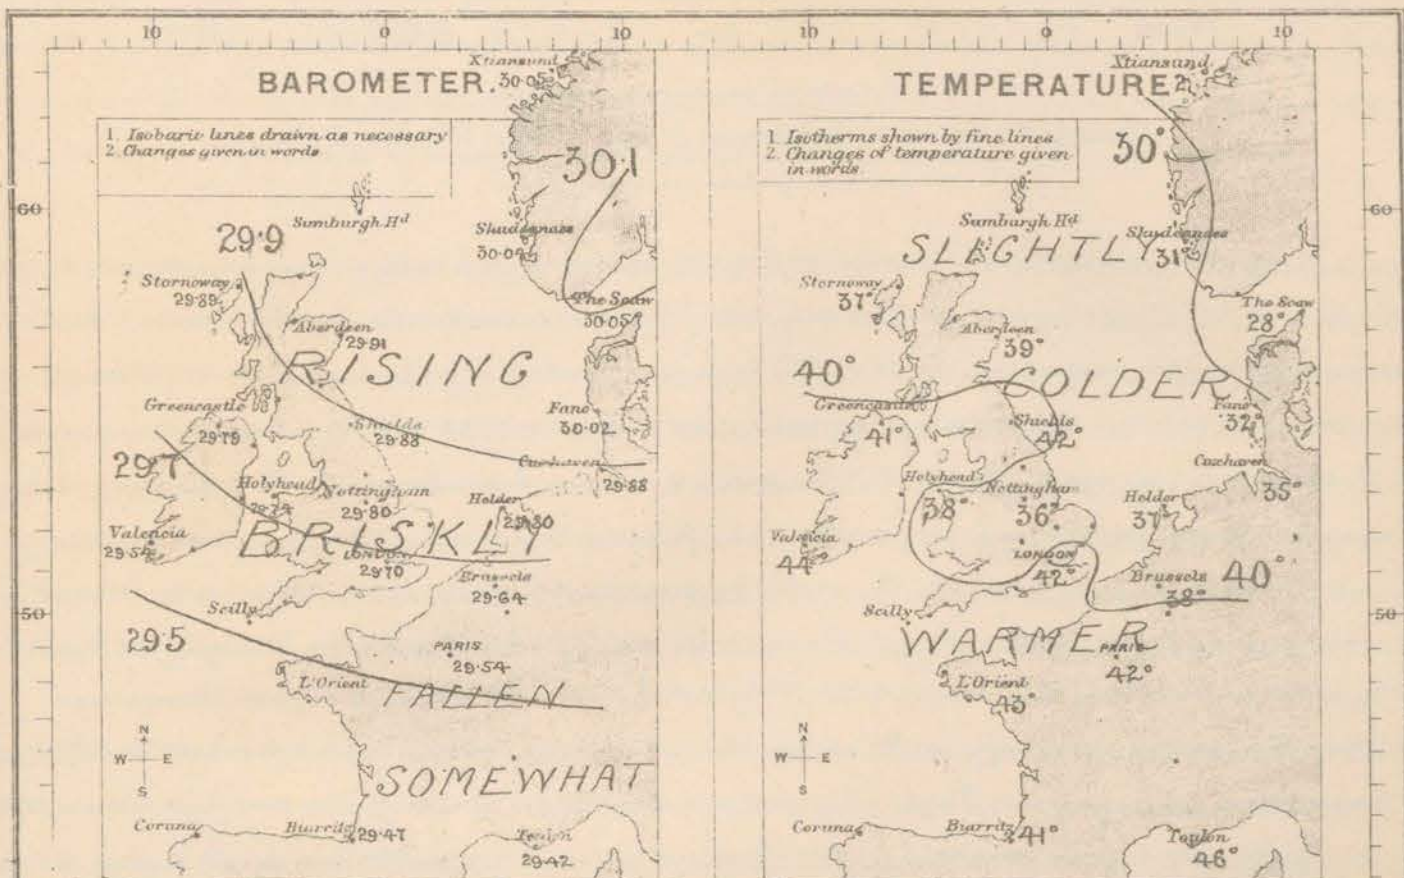 10 0 10
Xtiansund
BAROMETER. 30·05
1. Isobaric lines drawn as necessary
2. Changes given in words
30·1
60
Sumburgh Hd
Skudesnaes
29·9
30·04
Stornoway
29·89
The Scaw
30·05
Aberdeen
29·91
RISING
Greencastle
Fano
29·79
Shields
30·02
29·88
29·7
Cuxhaven
Holyhead
29·88
Nottingham
Helder
29·80
29·80
Valencia
BRISKLY
29·54
LONDON
29·70
Brussels
29·64
Scilly
50
29·5
PARIS
29·54
L'Orient
FALLEN
N
W E
S
SOMEWHAT
Coruna
Biarritz
29·47
Toulon
29·42
10 0 10
Xtiansund
TEMPERATURE
1. Isotherms shown by fine lines
2. Changes of temperature given
in words.
30°
60
Sumburgh Hd
Skudesnaes
SLIGHTLY
31°
Stornoway
37°
The Scaw
28°
Aberdeen
39°
40°
COLDER
Greencastle
Fano
41°
Shields
32°
42°
Cuxhaven
Holyhead
35°
38°
Nottingham
Helder
36°
37°
Valencia
44°
LONDON
42°
Brussels
40°
38°
Scilly
50
WARMER
PARIS
42°
L'Orient
43°
N
W E
S
Coruna
Biarritz
41°
Toulon
46°